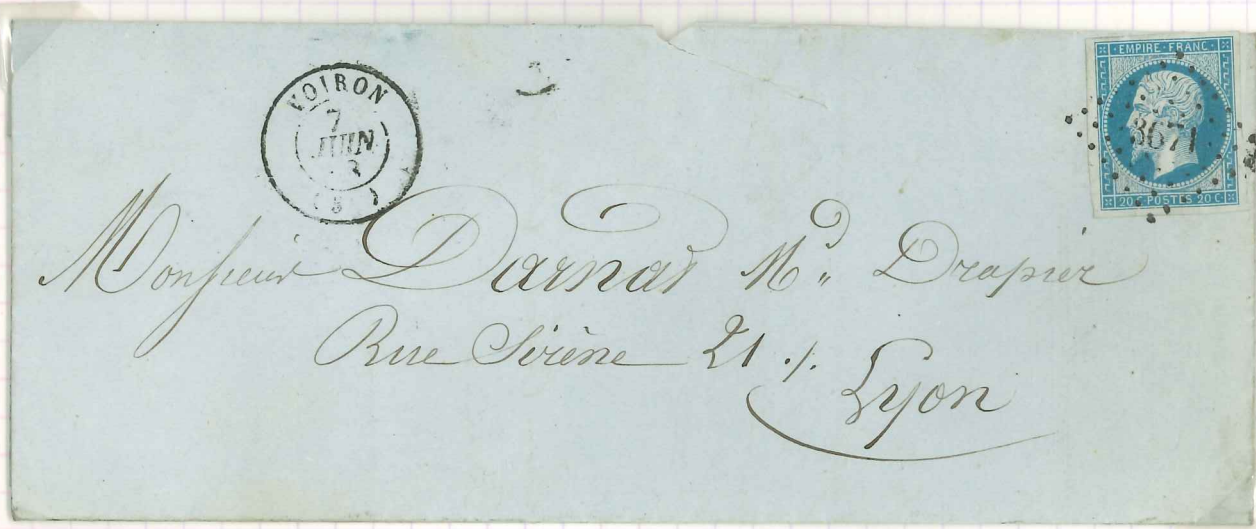 VOIRON
7
JUIN
EMPIRE · FRANC ·
3671
20 C POSTES 20 C
Monsieur Darnas Md Drapier
Rue Sirène 21 ./.
Lyon